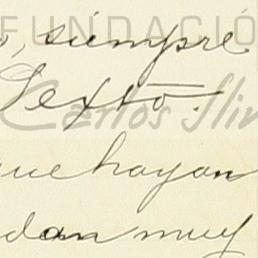 FUNDACIÓ
o, siempre
Sexto.
Carlos Slim
que hayan
dan muy